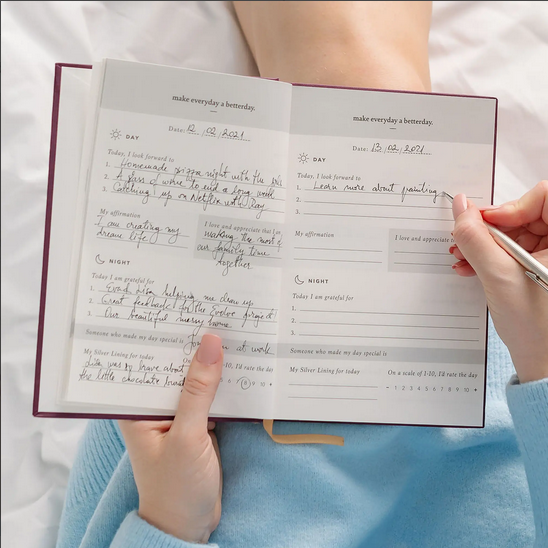 make everyday a betterday.
Date: 12 . 02 . 2021
DAY
Today, I look forward to
1. Homemade pizza night with the
2. A glass of wine to end a long week
3. Catching up on Netflix with Jay
My affirmation
I am creating my
dream life.
I love and appreciate that I am
making the most of
our family time
together
NIGHT
Today I am grateful for
1. Lisa helping me draw up
2. Great feedback for the Evolve project!
3. Our beautiful messy home
Someone who made my day special is
at work
My Silver Lining for today
was so brave about
the little chocolate
On a scale of 1-10, I'd rate the day
8 9 10 +
make everyday a betterday.
Date: 13 . 02 . 2021
DAY
Today, I look forward to
1. Learn more about painting
2.
3.
My affirmation
I love and appreciate
NIGHT
Today I am grateful for
1.
2.
3.
Someone who made my day special is
My Silver Lining for today
On a scale of 1-10, I'd rate the day
- 1 2 3 4 5 6 7 8 9 10 +